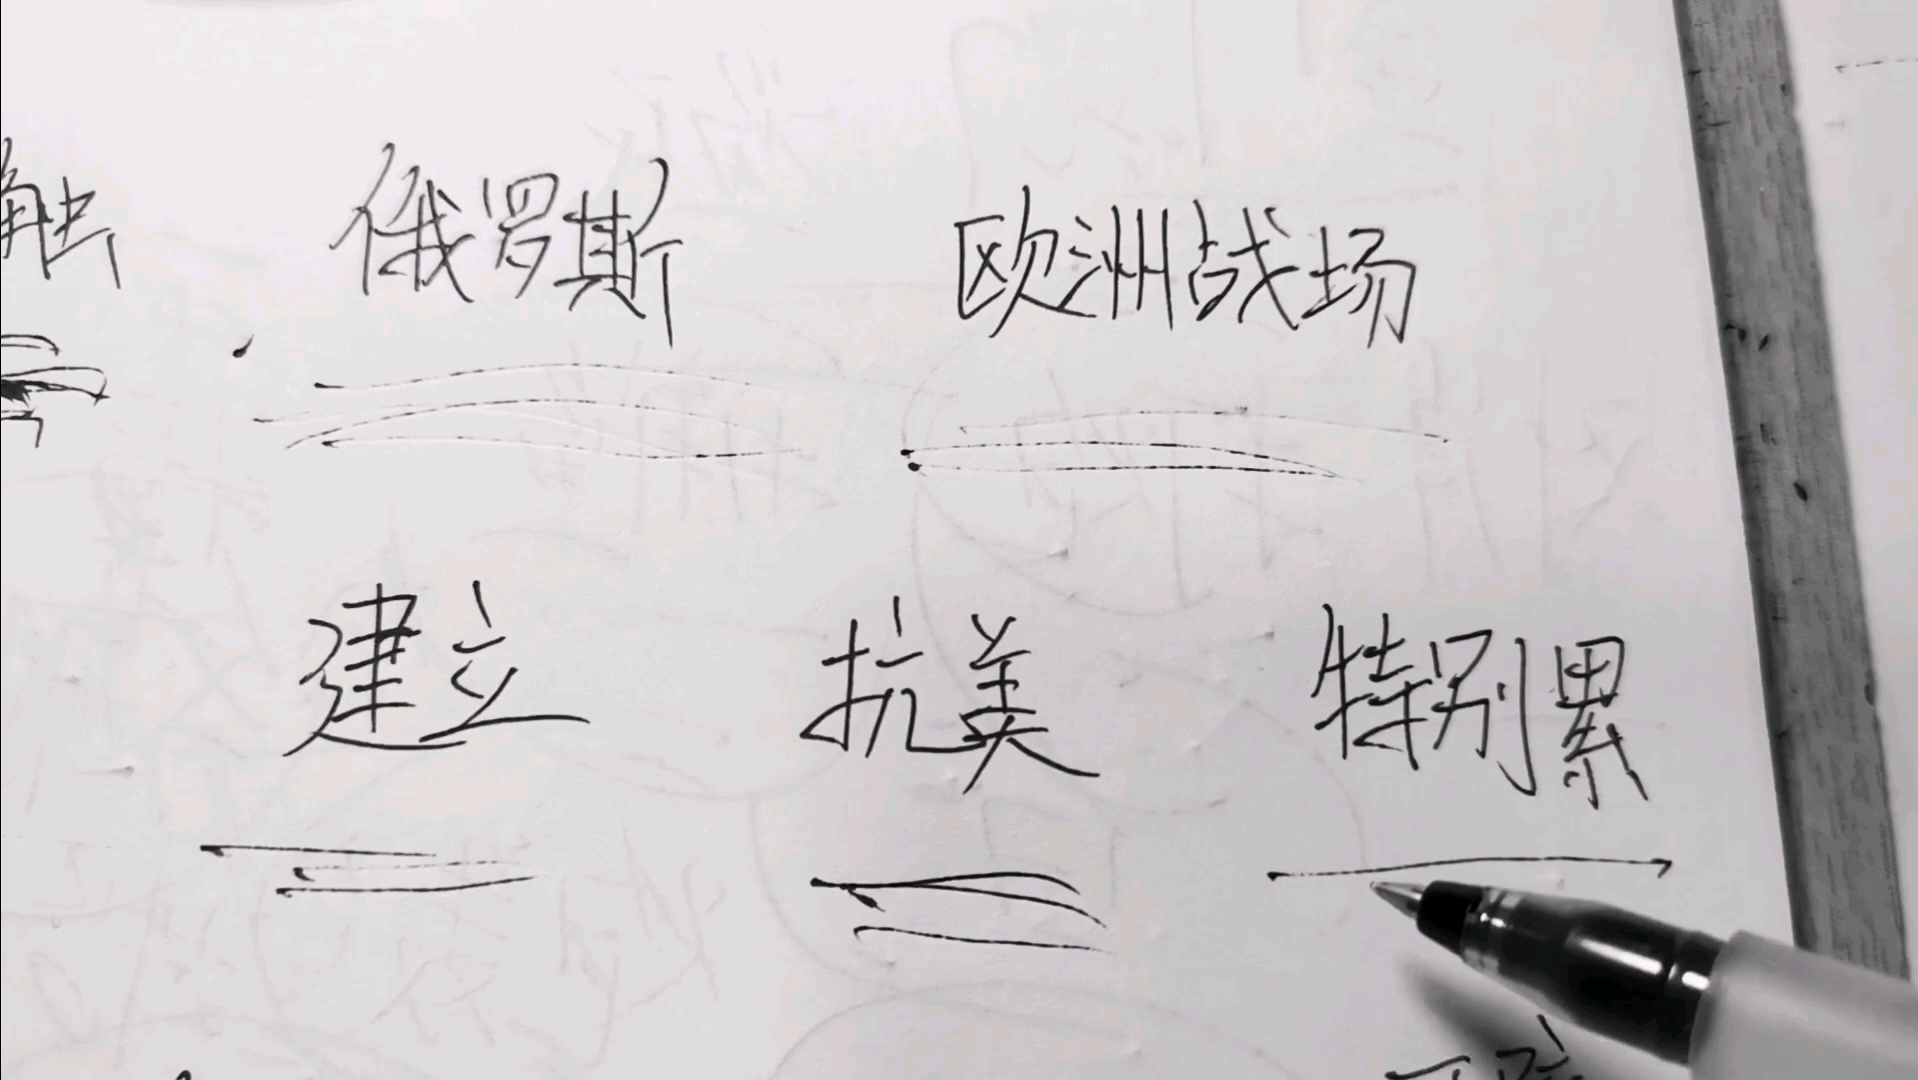 触 俄罗斯 欧洲战场
建立 抗美 特别累